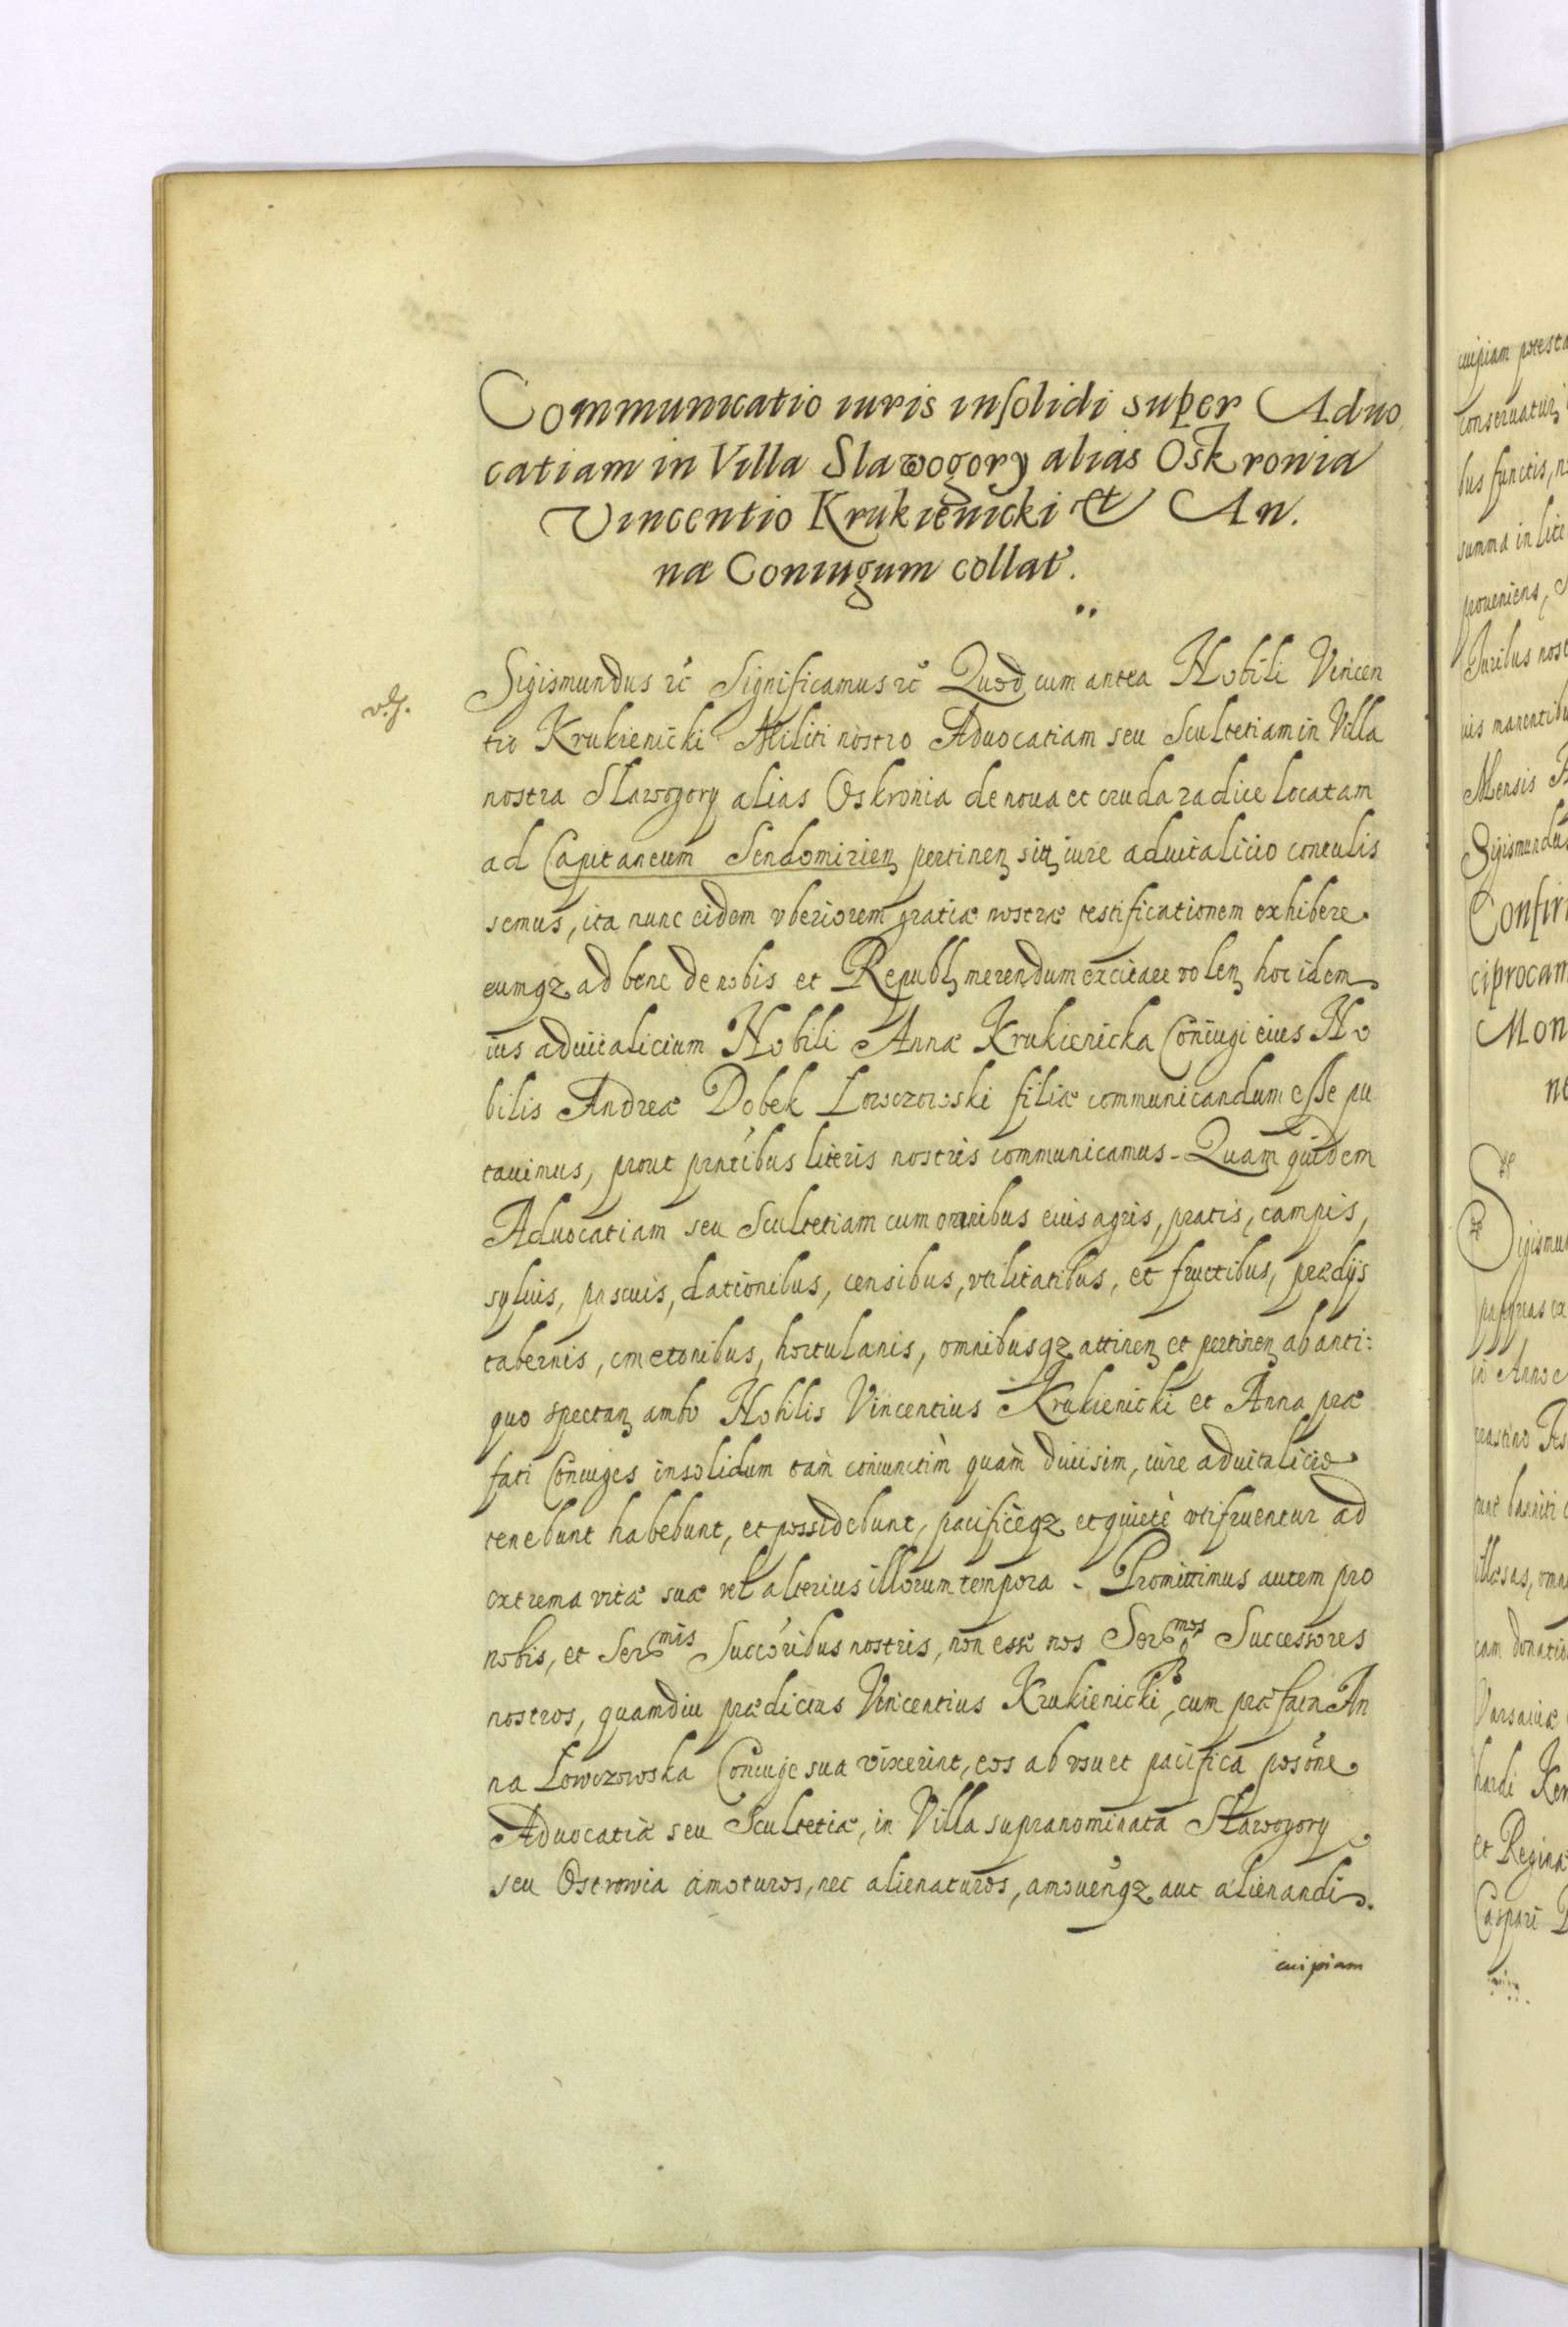 Communicatio iuris insolidi super Aduo
catiam in Villa Slawogory alias Oskronia
Vincentio Krukienicki & An.
næ Coniugum collat.
Sigismundus rc̃ Significamus rc̃ Quod cum antea Nobili Vincen
tio Krukienicki Militi nostro Aduocatiam seu Scultetiam in Villa
nostra Slawogory alias Oskronia de noua et cruda radice locatam
ad Capitaneum Sendomirien pertinen sitt iure aduitalicio contulis
semus, ita nunc eidem vberiorem gratiæ nostræ testificationem exhibere
eumqz ad bene de nobis et Republ merendum excitare volen hoc idem
ius aduitalicium Nobili Annæ Krukienicka Coniugi eius No
bilis Andreæ Dobek Lowczowski filiæ communicandum esse pu
tauimus, prout pñtibus literis nostris communicamus - Quam quidem
Aduocatiam seu Scultetiam cum omnibus eius agris, pratis, campis,
syluis, pascuis, dationibus, censibus, vtilitatibus, et fructibus, prædijs
tabernis, cmetonibus, hortulanis, omnibusqz attinen et pertinen ab anti:
quo spectan ambo Nobilis Vincentius Krukienicki et Anna præ
fati Coniuges insolidum tam̀ coniunctim̀ quam̀ diuisim, iure aduitalicio
tenebunt habebunt, et possidebunt, pacificèqz et quietè vtifruentur ad
extrema vitæ suæ vel alterius illorum tempora - Promittimus autem pro
nobis, et Ser mis Succoribus nostris, non esse nos Ser mos Successores
nostros, quamdiu prædictus Vincentius Krukienicki, cum præfata An
na Lowczowska Coniuge sua vixerint, eos ab vsu et pacifica posõne
Aduocatiæ seu Scultetiæ, in Villa supranominata Slawogory
seu Ostrowia amoturos, nec alienaturos, amouen̄qz aut alienandi
cuipiam